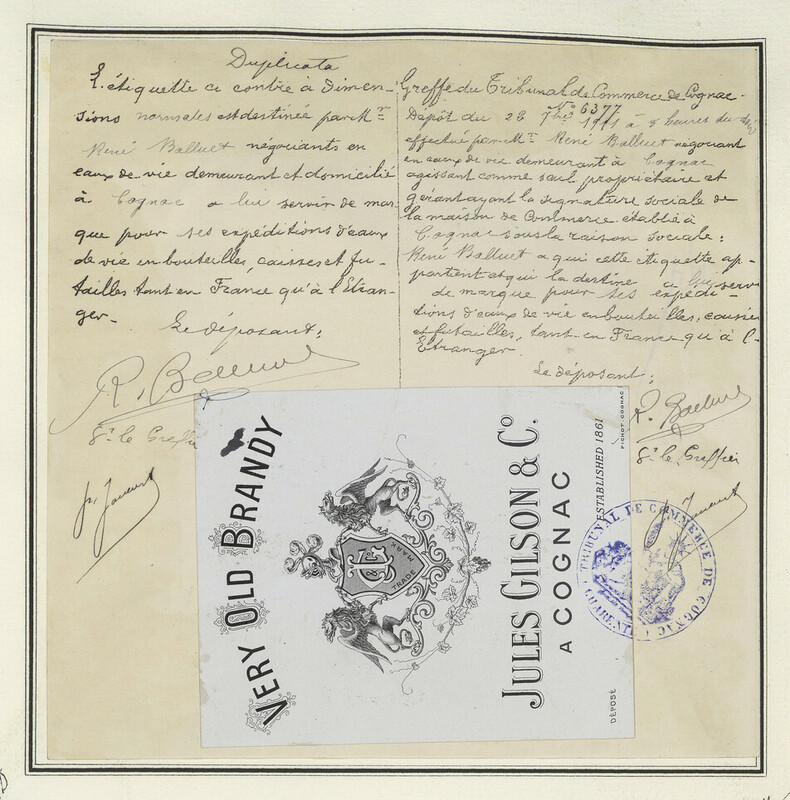 Duplicata
L'étiquette ci contre à dimen-
sions normales est destinée par Mr
René Balluet négociants en
eaux de vie demeurant et domicilié
à Cognac a lui servir de mar-
que pour ses expéditions d'eaux
de vie en bouteilles, caisses et fu-
tailles tant en France qu'à l'Etran-
ger.
Le déposant;
R. Balluet
Pr le Greffier
Greffe du Tribunal de Commerce de Cognac.
No 6377
Dépôt du 28 7bre 1911 à 9 heures du
effectué par Mr René Balluet négociant
en eaux de vie demeurant à Cognac
agissant comme seul propriétaire et
gérant ayant la signature sociale de
la maison de Commerce établie à
Cognac sous la raison sociale:
René Balluet a qui cette étiquette ap-
partient et qui la destine a lui servir
de marque pour ses expédi-
tions d'eaux de vie en bouteilles, caisses
et futailles, tant en France qu'à l'
Etranger.
Le déposant;
R. Balluet
Pr le Greffier
VERY OLD BRANDY
TRADE MARK
JG
JULES GILSON & Co.
A COGNAC
ESTABLISHED 1861
PICHOT COGNAC
DÉPOSÉ
TRIBUNAL DE COMMERCE DE COGNAC
CHARENTE